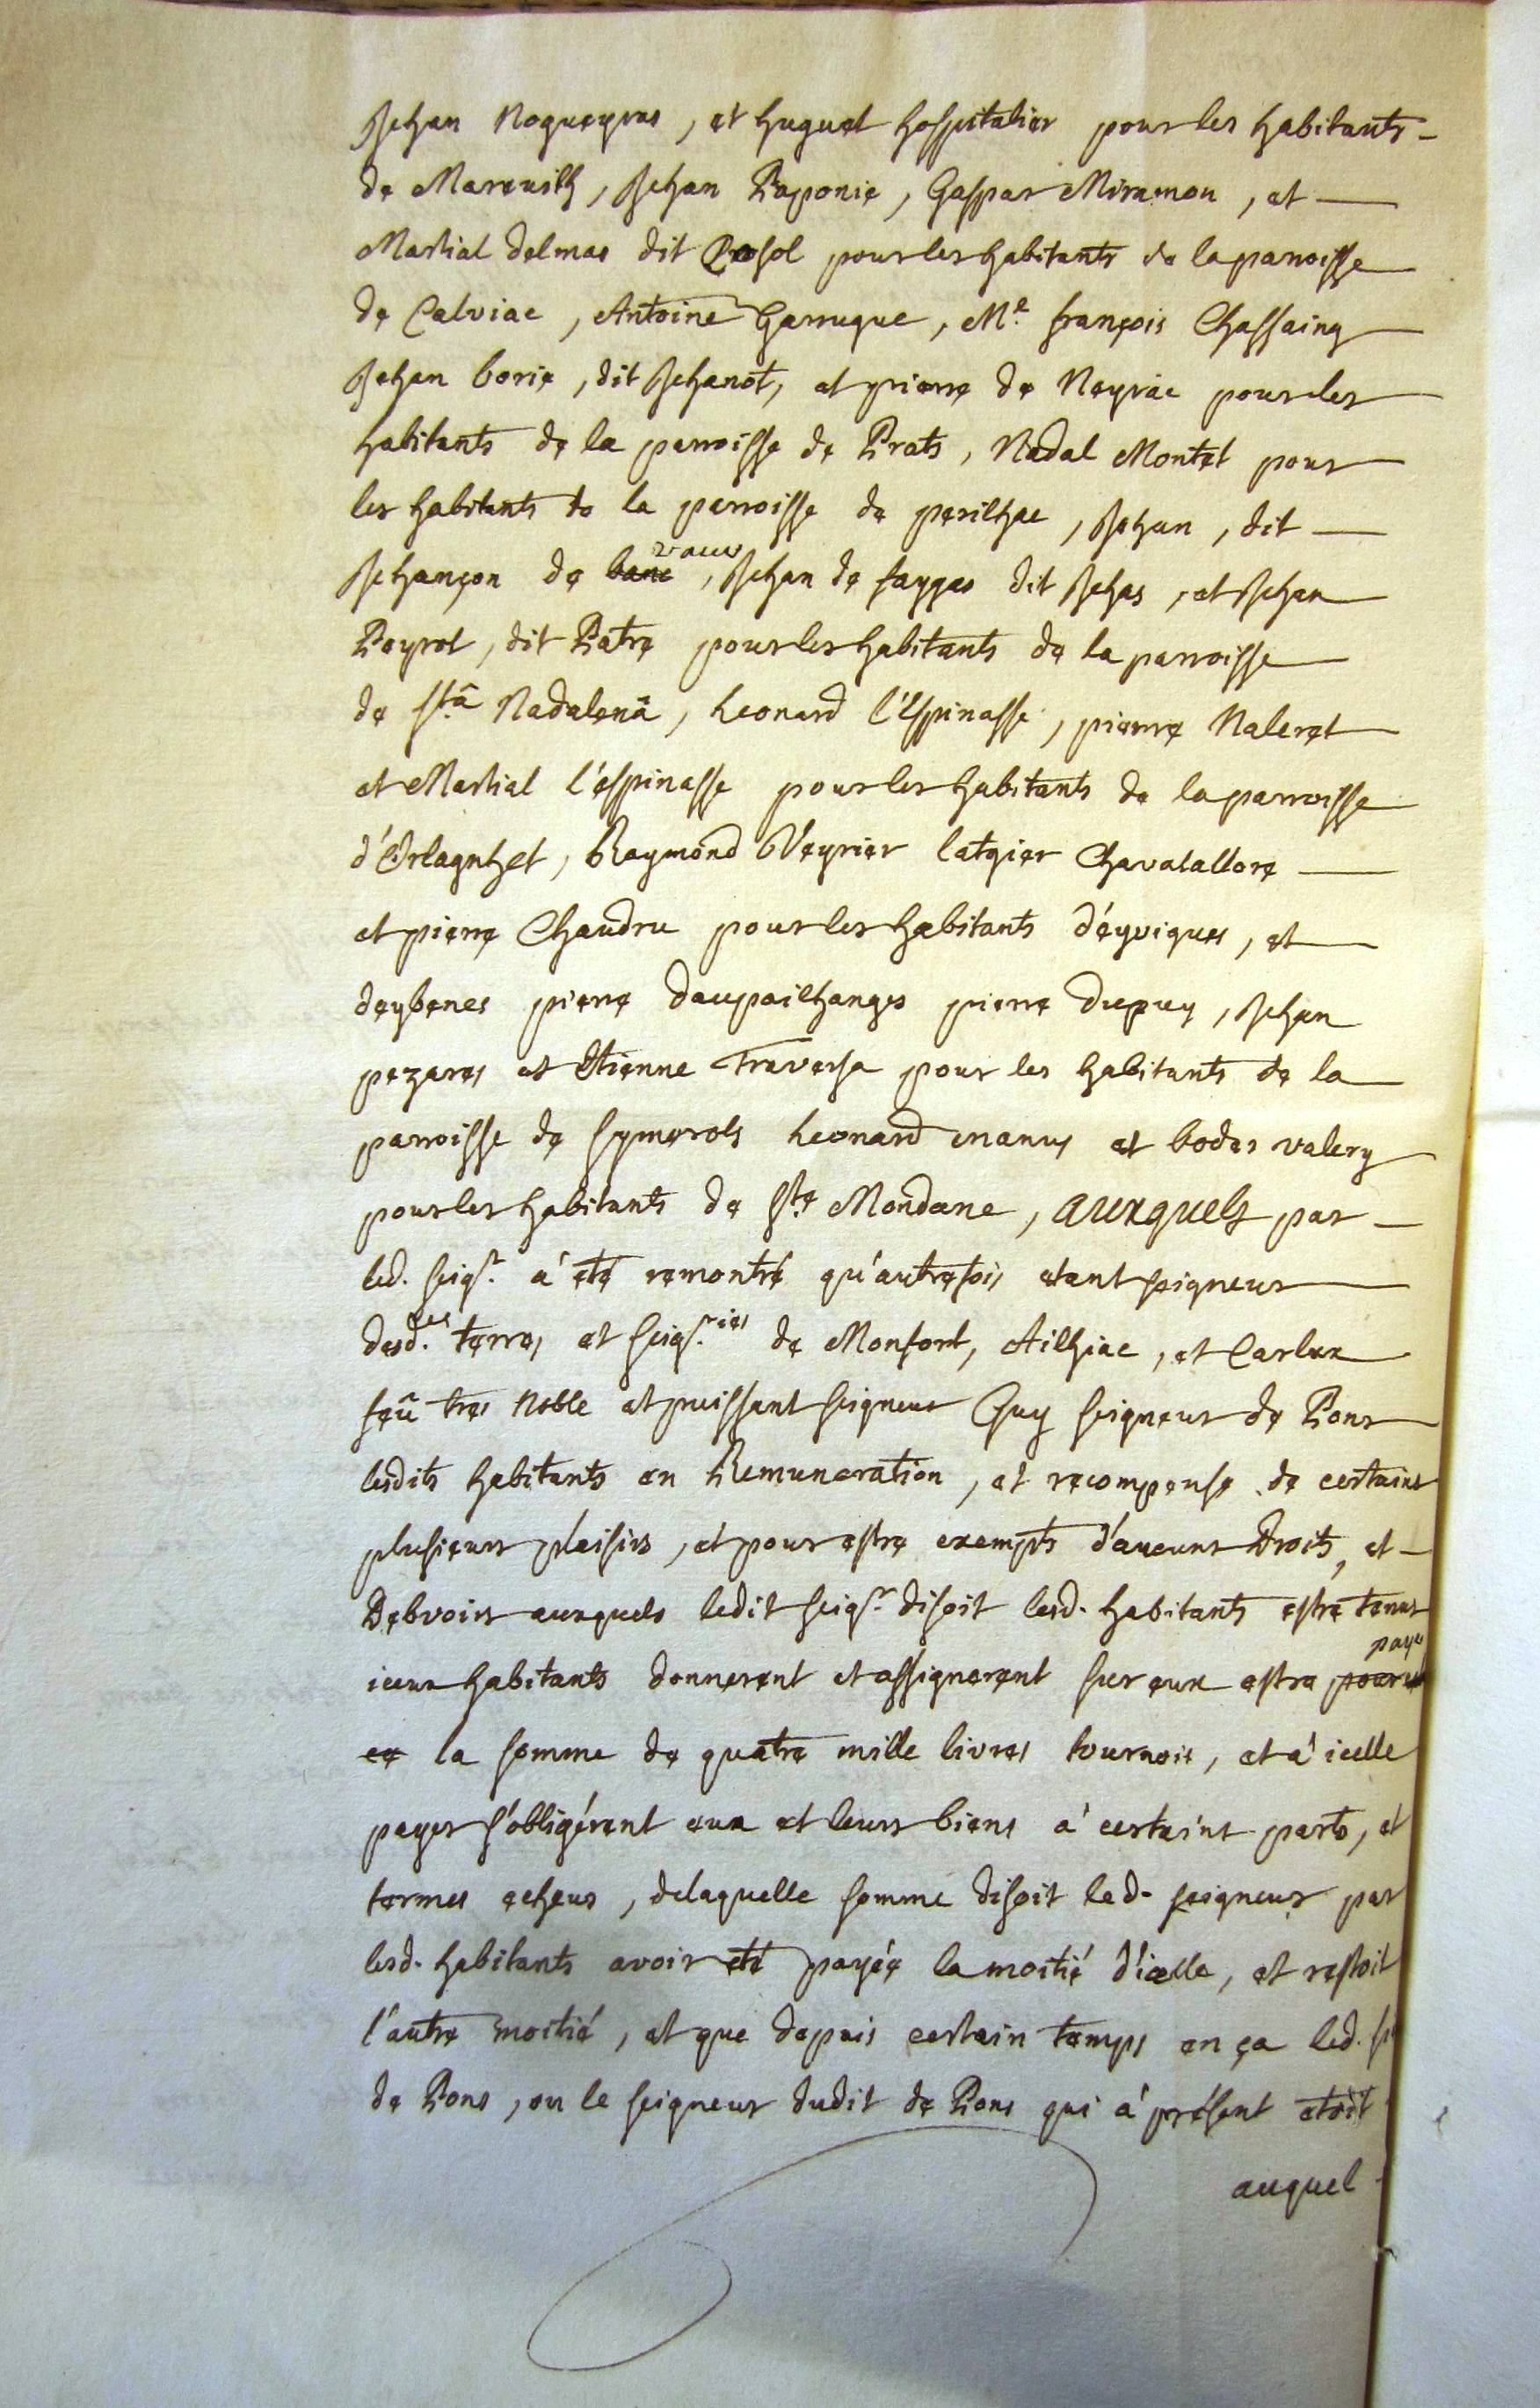 Jehan Nogueyras, et huguet hospitalier pour les habitants
de Mareuilh, Jehan Paponie, Gaspar Miramon, et
Martial delmas dit Casol pour les habitants de la parroisse
de Calviac, Antoine Garrugue, Me. françois Chassaing
Jehan borie, dit Jehanot, et pierre de Neyrac pour les
habitants de la parroisse de Prats, Nadal Montet pour
les habitants de la parroisse de perilhac, Jehan, dit
Jehançon de vaux, Jehan de faygas dit Jehas, et Jehan
Peyrot, dit Patre pour les habitants de la parroisse
de sta. Nadalena, Leonard l'Espinasse, pierre Naleret
et Martial l'espinasse pour les habitants de la parroisse
d'Orlagnhet, Raymond Veyrier latgier Chavatallore
et pierre Chaudru pour les habitants d'éyvigues, et
deybenes pierre daupailhanges pierre Dupuy, Jehan
pezares et Etienne Traversa pour les habitants de la
parroisse de symerols Leonard manus et bodas valery
pour les habitants de ste. Mondane, auxquels par
led. seigr. a été remontré qu'autrefois etant seigneur
desd.es terres et seigr.ies de Monfort, Ailhiac, et Carlux
feu tres Noble et puissant seigneur Guy seigneur de Pons
lesdits habitants en Remuneration, et recompense de certains
plusieurs plaisirs, et pour estre exempts d'aucuns Droits, et
Debvoirs auxquels ledit seigr. disoit lesd. habitants estre tenus
iceux habitants donnerent et assignerent sur eux estra paye
la somme de quatre mille livres tournois, et a' icelle
payer s'obligérent eux et leurs biens a' certains parts, et
termes echeus, delaquelle somme disoit led. seigneur par
lesd. habitants avoir été payée la moitié d'icelle, et restoit
l'autre moitié, et que depuis certain temps en ça led.
de Pons, ou le seigneur dudit de Pons qui a' présent etoit
auquel